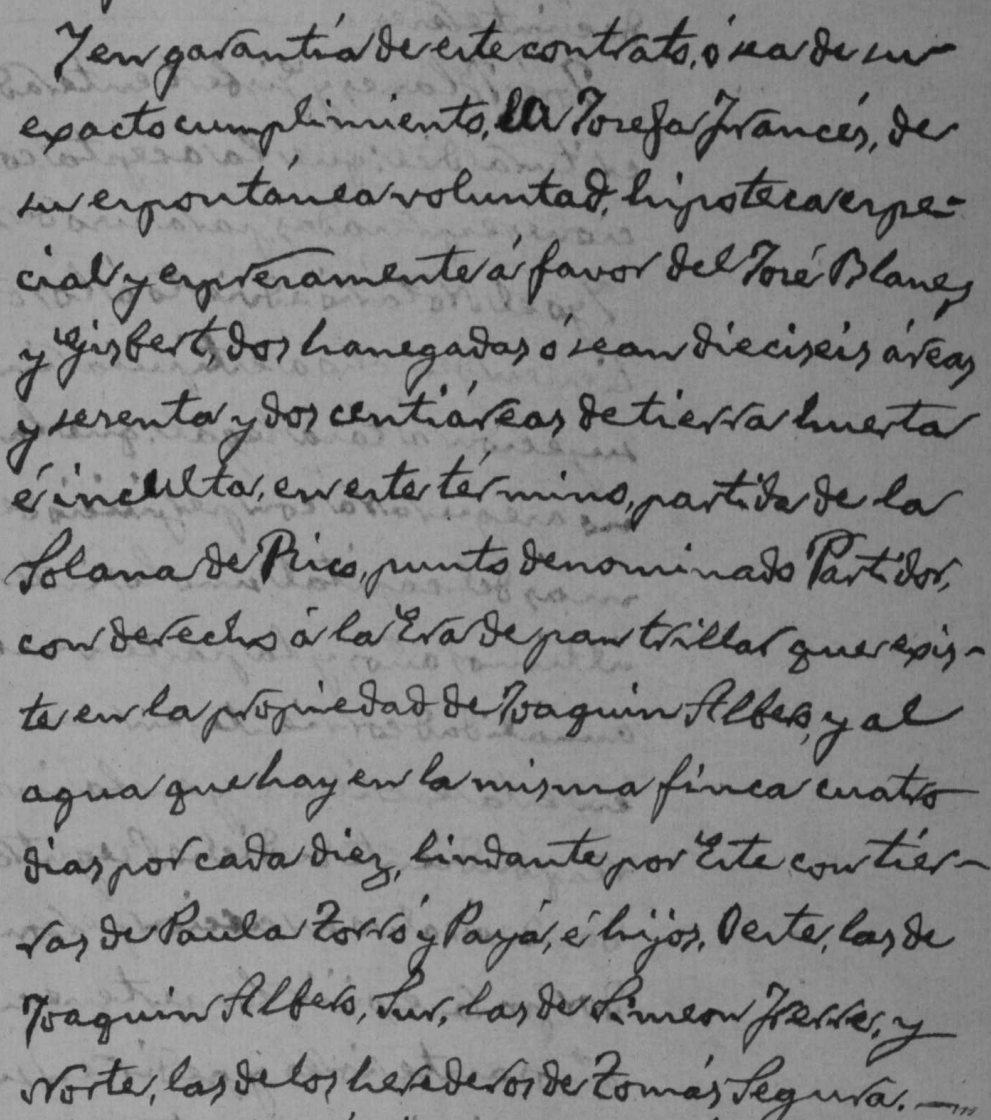 Y en garantía de este contrato, ó sea de su
exacto cumplimiento, la Josefa Francés, de
su espontánea voluntad, hipoteca espe-
cial y expresamente á favor del José Blanes
y Gisbert, dos hanegadas ó sean dieciseis áreas
y sesenta y dos centiáreas de tierra huerta
é inculta, en este término, partida de la
Solana de Rico, punto denominado Partidor,
con derecho á la Era de pan trillar que exis-
te en la propiedad de Joaquin Albero, y al
agua que hay en la misma finca cuatro
dias por cada diez, lindante por Este con tier-
ras de Paula Zorró y Payá, é hijos, Oeste, las de
Joaquin Albero, Sur, las de Simeon Ferre, y
Norte, las de los herederos de Tomás Segura. —